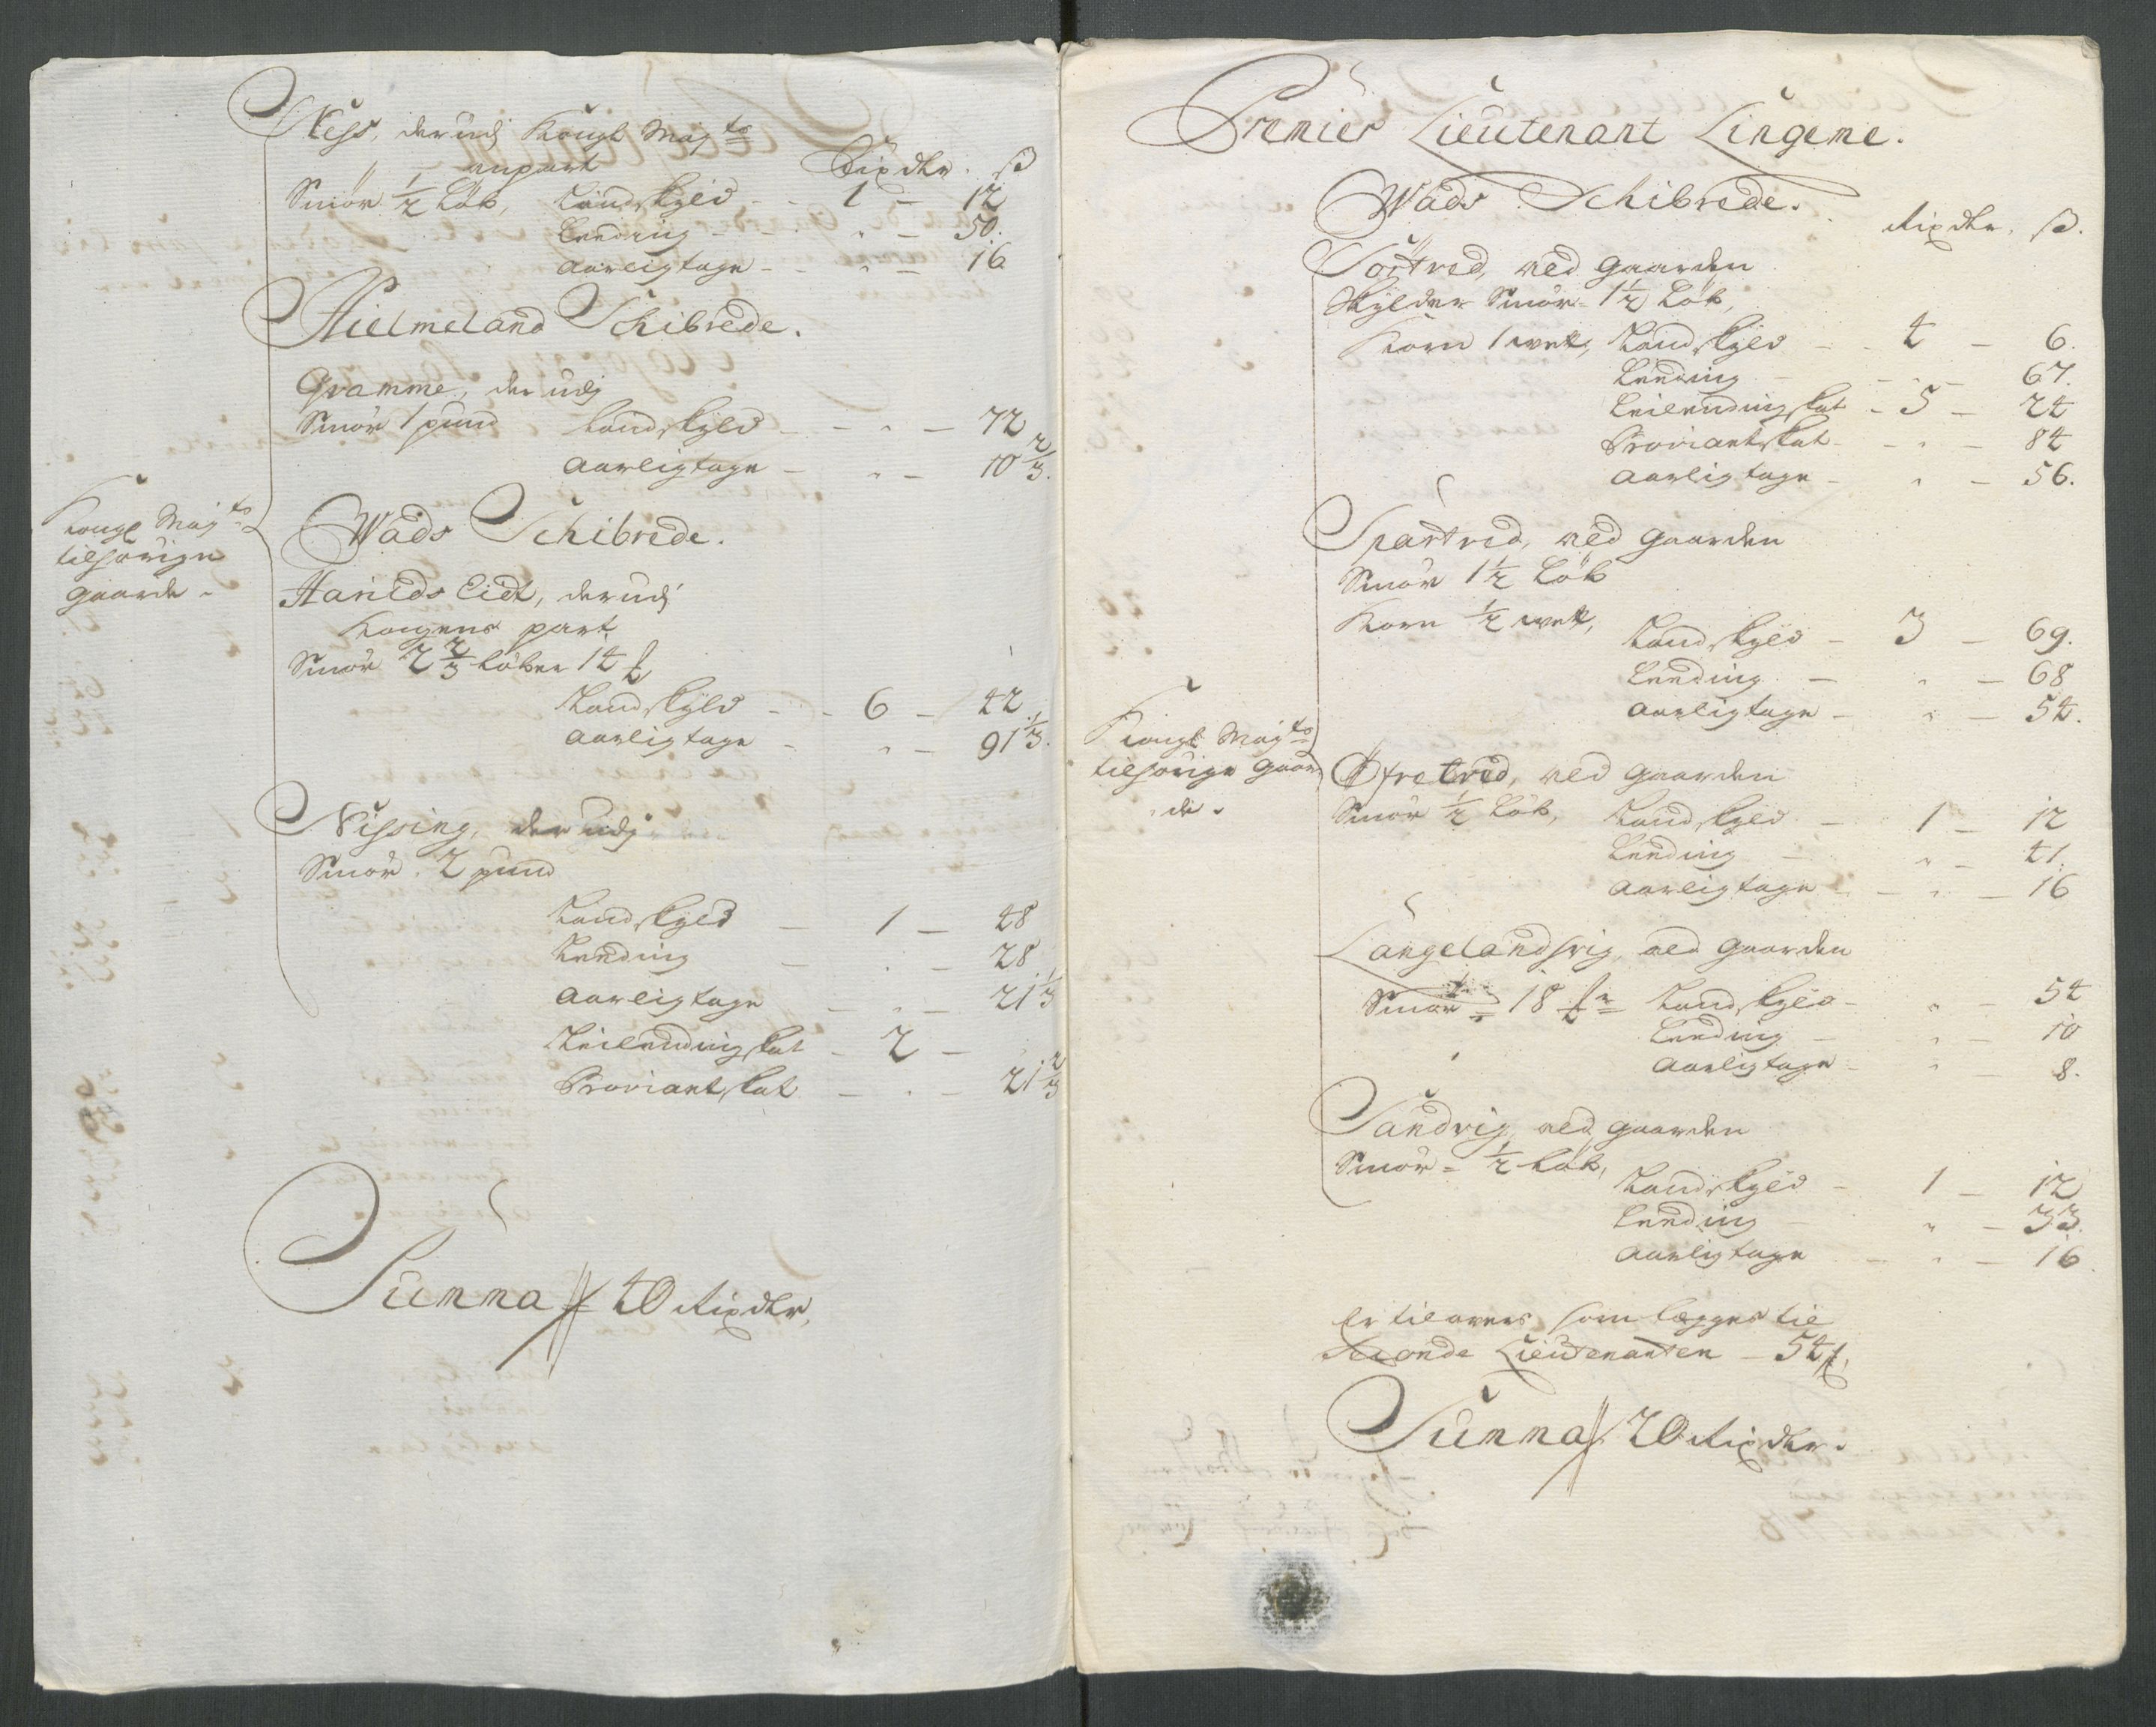 Ness, derudj Kongl Mayts
anpart Rixdlr. ß
Smör ½ Löb, Landskyld - - 1 - 12
Leeding - - " - 50.
Aarligtage - - " - 16
Hielmeland Schibrede.
Gramme, derudj
Smör 1 pund Landskyld - - " - 72
Aarligtage - " - 10 2/3.
Kongl Mayts
tilhörige
gaarde -
Wads Schibrede.
Harilds Eidt, derudj
Kongens part
Smör 2 2/3 Löber 12 ℔
Landskyld - - 6 - 42
Aarligtage - " - 91 1/3.
Nissing, derudj
Smör 2 pund
Landskyld - 1 - 48
Leeding - " - 28
Aarligtage - " - 21 1/3
Leilendingskat - 2 -
Proviantskat - " - 21 2/3
Summa 40 Rixdlr.
Premier Lieutenant Lingeme.
Wads Schibrede.
Rixdlr. ß.
Törtved, ved gaarden
Skylder Smör 1½ Löb,
Korn 1 vett, Landskyld - - 4 - 6.
Leeding - - - 67.
Leilendingskat - 5 - 24
Proviantskat - - " - 84
Aarligtage - " - 56.
Spartved, ved gaarden
Smör 1½ Löb
Korn ½ vett,
Landskyld - 3 - 69.
Leeding - " - 68
Aarligtage - " - 54.
Kongl Mayts
tilhörige gaar-
de.
Öfretved, ved gaarden
Smör ½ Löb, Landskyld - 1 - 12
Leeding - " - 41.
Aarligtage - - " - 16
Langelandsvig, ved gaarden
Smör 18 ℔ Landskyld - " - 54
Leeding - " - 10
Aarligtage - " - 8.
Sandvig, ved gaarden
Smör - ½ Löb,
Landskyld - 1 - 12
Leeding - " - 33.
Aarligtage - " - 16.
Er tilovers som legges til
Seconde Lieutenanten - 54 ß.
Summa 20 Rixdlr.